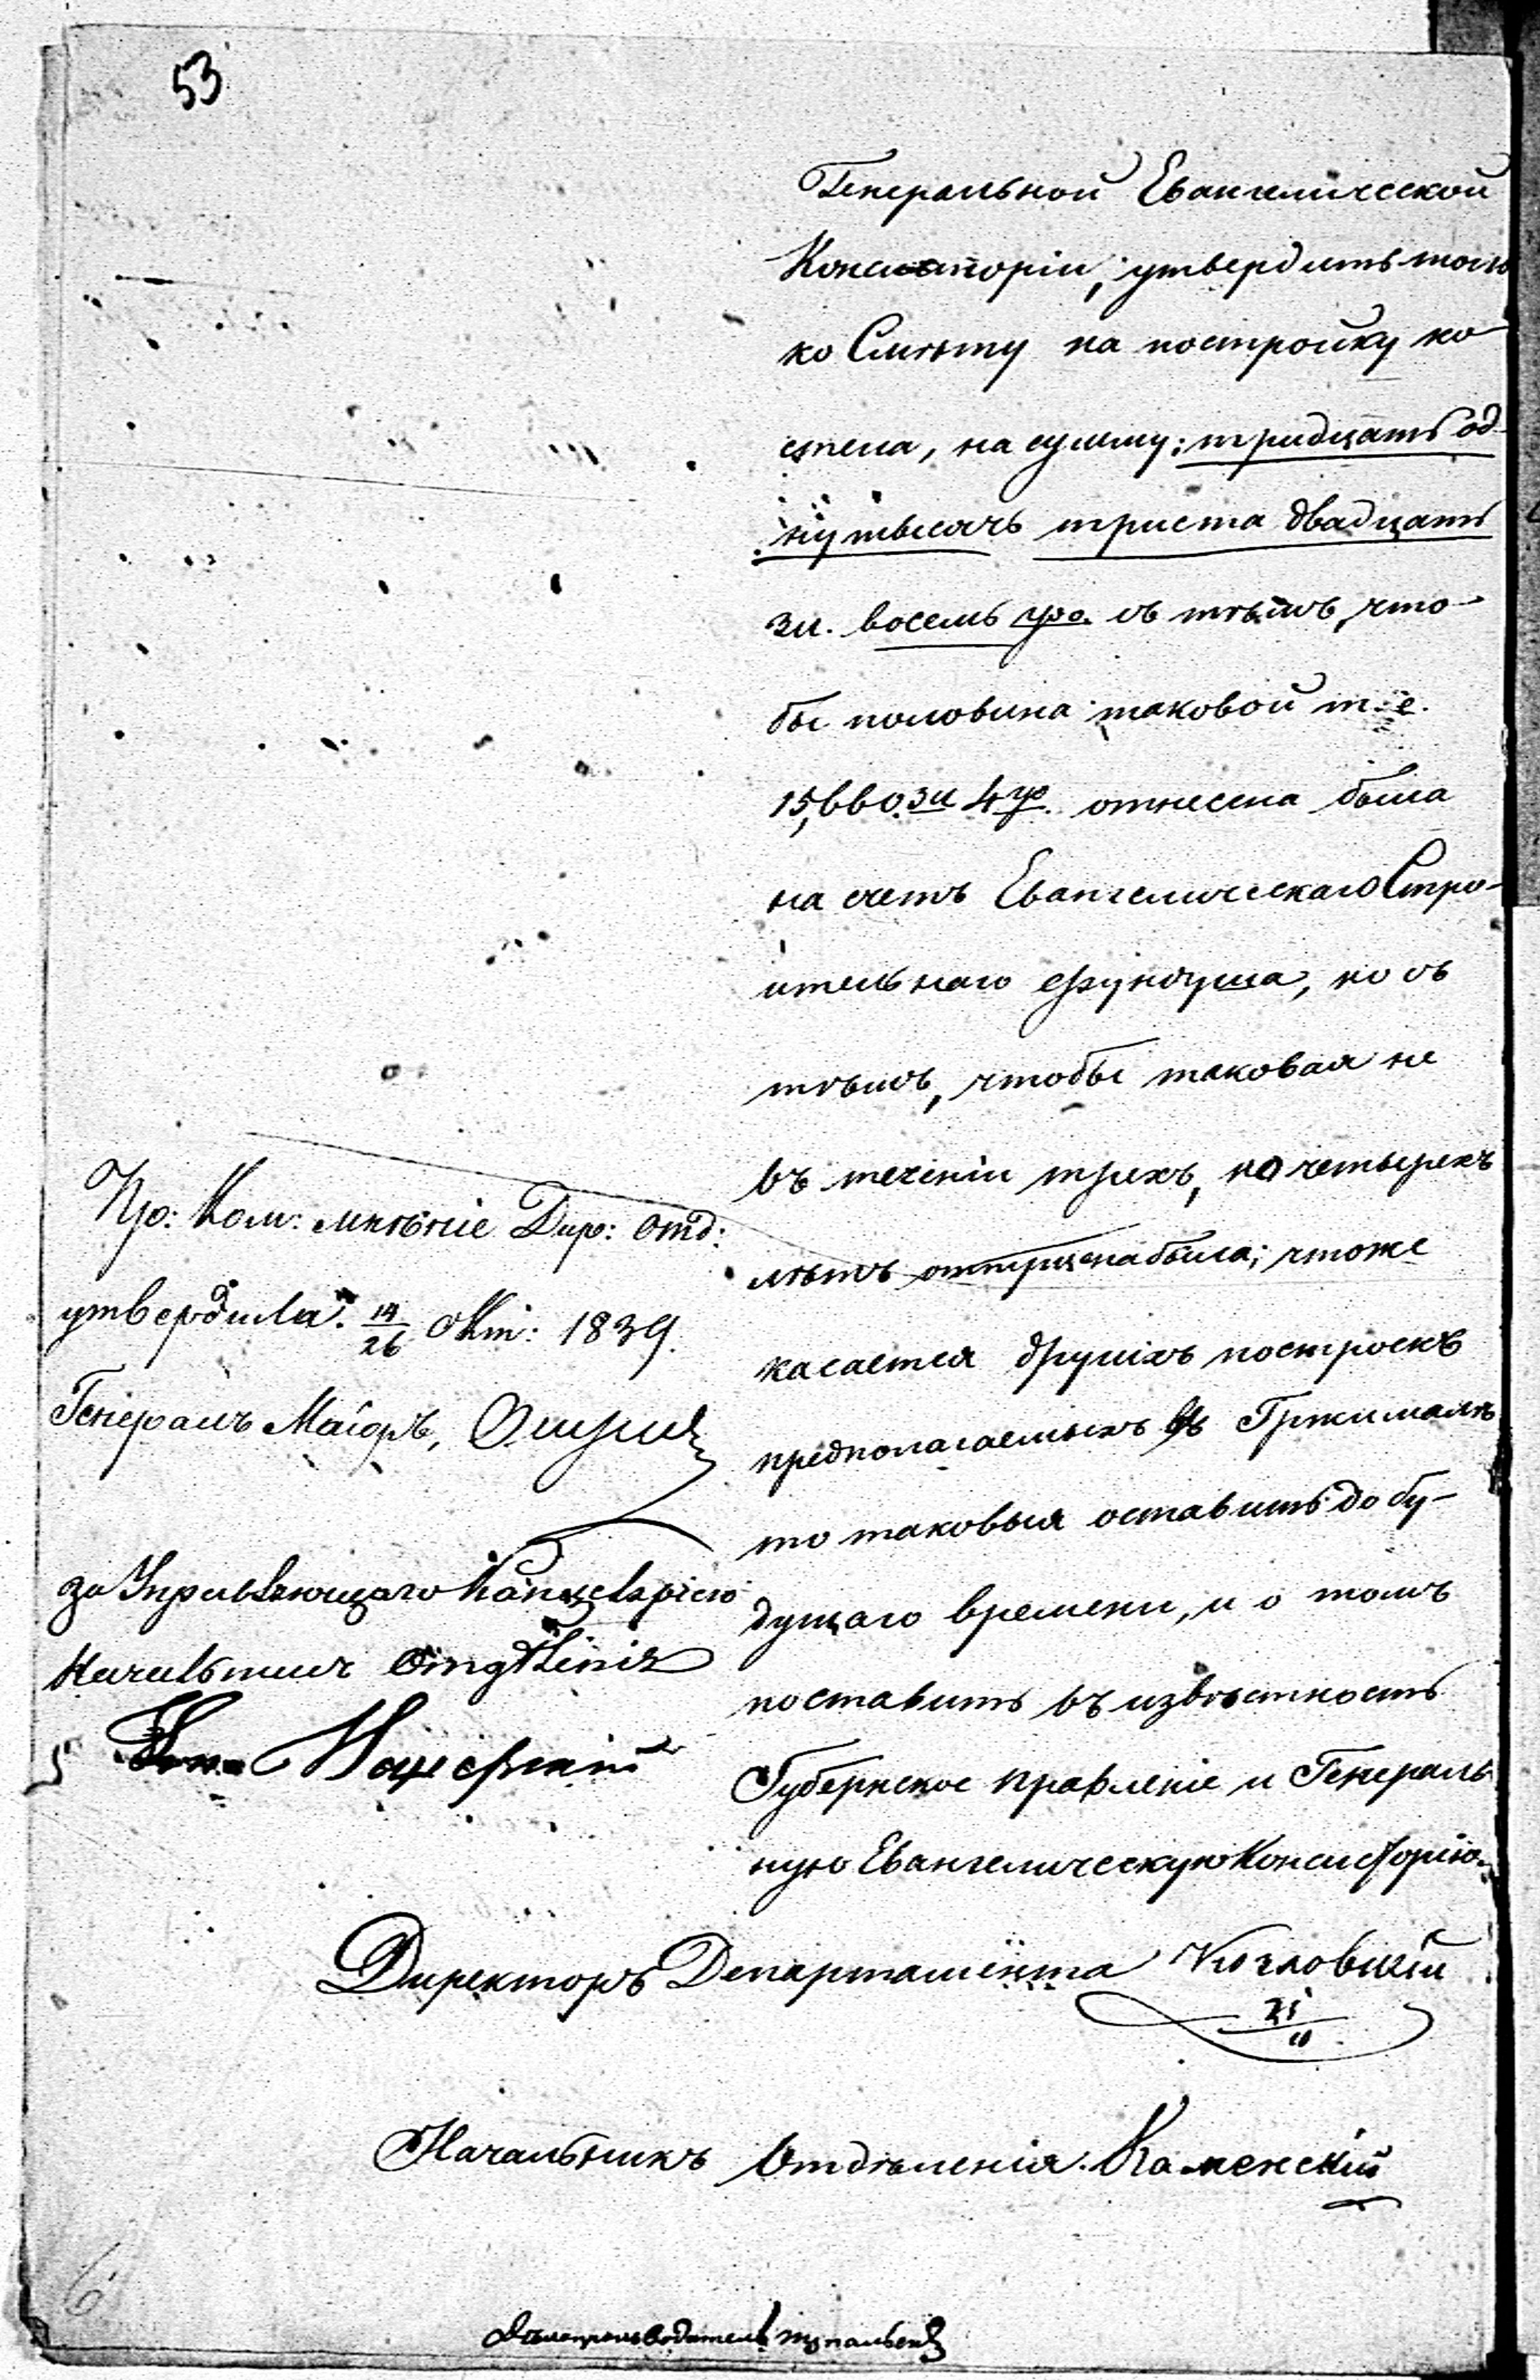 53
Генеральной Евангелической
Консисторіи, утвердить толь
ко Смѣту на постройку ко
стела, на сумму: тридцать од-
ну тысячъ триста двадцать
зл. восемь гро. съ тѣмъ, что-
бы половина таковой т. е.
15,660 зл 4 гр. отнесена была
на счетъ Евангелическаго Стро-
ительнаго фундуша, но съ
тѣмъ, чтобы таковая не
въ теченіи трехъ, но четырехъ
лѣтъ отпущена была; чтоже
касается другихъ построекъ
предполагаемыхъ въ Гржималкѣ
то таковыя оставить до бу-
дущаго времени, и о томъ
поставить въ извѣстность
Губернское правленіе и Генераль
ную Евангелическую Консисторію.
Пр: Ком: мнѣніе Дир: отд:
утвердила. 14/26 Окт: 1839.
Генералъ Маіоръ,
за Управляющаго Канцеляріею
Начальникъ Отдѣленія
Директоръ Департамента Козловскій
Начальникъ Отдѣленія. Каменскій
Дѣлопроизводитель
6